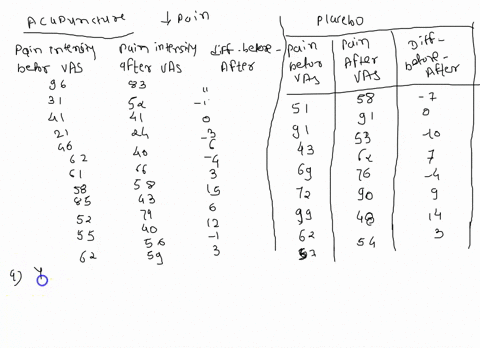 Acupuncture ↓ Pain
Pain intensity before VAS Pain intensity after VAS diff. before - After
96 83 "
31 52 -1
41 41 0
21 24 -3
46 40 6
62 66 -4
61 58 3
58 43 15
85 79 6
52 40 12
55 56 -1
62 59 3
Placebo
Pain before VAS Pain After VAS Diff- before - After
51 58 -7
91 91 0
43 53 -10
69 62 7
72 76 -4
99 90 9
62 48 14
57 54 3
a) Y